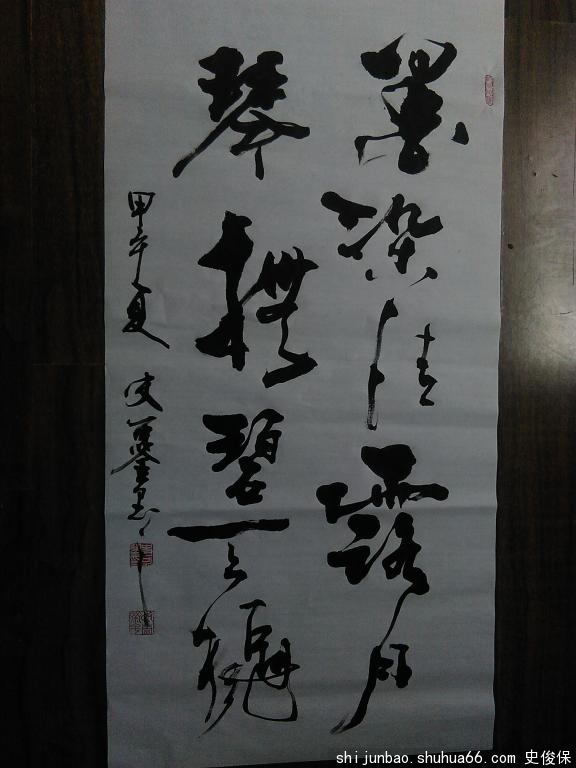 墨染清露月
琴横碧云龝
甲午夏 史
shijunbao.shuhua66.com 史俊保